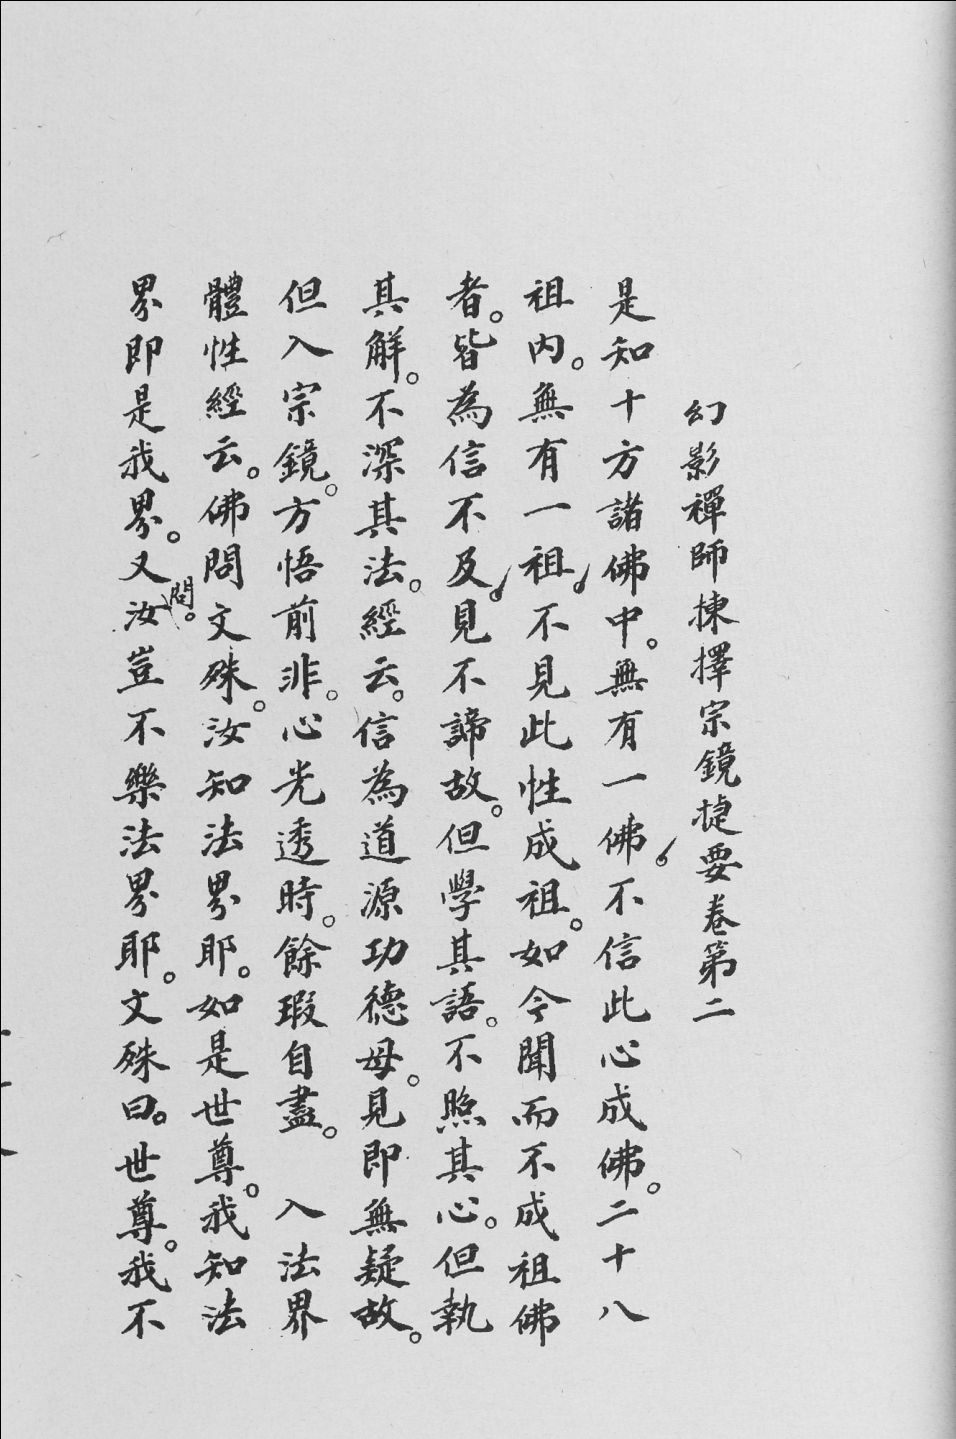 幻影禪師揀擇宗鏡捷要卷第二
是知十方諸佛中。無有一佛。不信此心成佛。二十八
祖內。無有一祖。不見此性成祖。如今聞而不成祖佛
者。皆為信不及。見不諦故。但學其語。不照其心。但執
其解。不深其法。經云。信為道源功德母。見即無疑故。
但入宗鏡。方悟前非。心光透時。餘瑕自盡。　入法界
體性經云。佛問文殊。汝知法界耶。如是世尊。我知法
界即是我界。又問。汝豈不樂法界耶。文殊曰。世尊。我不